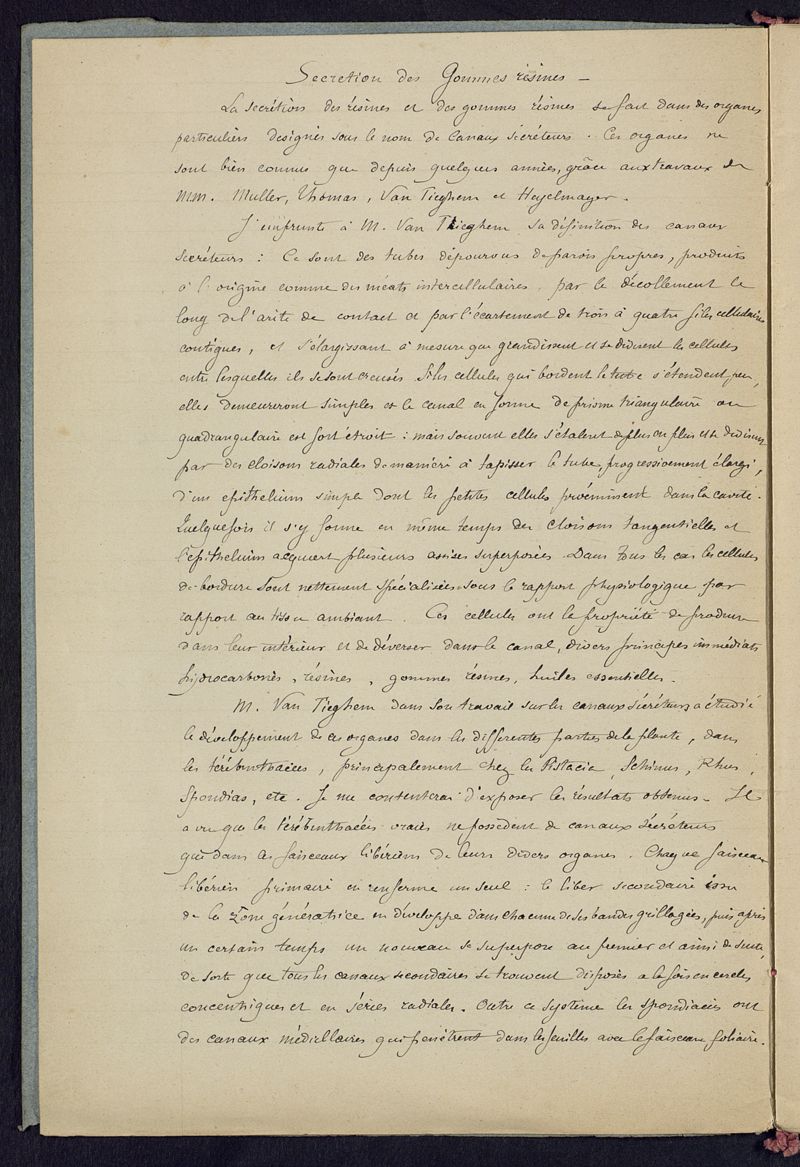 Secretion des Gommes résines —
La secrétion des résines et des gommes résines se fait dans des organes
particuliers designés sous le nom de Canaux sécréteurs. Ces organes ne
sont bien connus que depuis quelques années, grâce aux travaux de
MM. Muller, Thomas, Van Tieghem et Hegelmayer.
J'emprunte à M. Van Tieghem sa définition des canaux
secréteurs : Ce sont des tubes dépourvus de parois propres, produits
à l'origine comme des méats intercellulaires par le décollement le
long de l'arête de contact et par l'écartement de trois à quatre files cellulaires
contigues, et s'élargissant à mesure que grandissent et se divisent les cellules
entre lesquelles ils se sont creusés. Si les cellules qui bordent le tube s'étendent peu,
elles demeureront simples et le canal en forme de prisme triangulaire ou
quadrangulaire est fort étroit : mais souvent elles s'étalent de plus en plus et se divisent
par des cloisons radiales de manière à tapisser le tube, progressivement élargi,
d'un epithelium simple dont les petites cellules proéminent dans la cavité.
Quelquefois il s'y forme en même temps des cloisons tangentielles et
l'épithelium acquiert plusieurs assises superposées. Dans tous les cas les cellules
de bordure sont nettement spécialisées sous le rapport physiologique par
rapport au tissu ambiant. Ces cellules ont la propriété de produire
dans leur intérieur et de déverser dans le canal, divers principes immédiats
hydrocarbonés, résines, gommes résines, huiles essentielles.
M. Van Tieghem dans son travail sur les canaux sécréteurs a étudié
le développement de ces organes dans les differentes parties de la plante, dans
les térébinthacées, principalement chez les Pistacia, Schinus, Rhus,
Spondias, etc. Je me contenterai d'exposer les résultats obtenus. Il
a vu que les térébinthacées vraies ne possèdent de canaux sécréteurs
que dans les faisceaux libériens de leurs divers organes. Chaque faisceau
libérien primaire en renferme un seul : le liber secondaire issu
de la zone génératrice en développe dans chacune de ses bandes grillagées, puis après
un certain temps un nouveau se superpose au premier et ainsi de suite,
de sorte que tous les canaux secondaires se trouvent disposés à la fois en cercles
concentriques et en séries radiales. Outre ce système les spondiacées ont
des canaux médullaires qui penètrent dans les feuilles avec le faisceau foliaire.